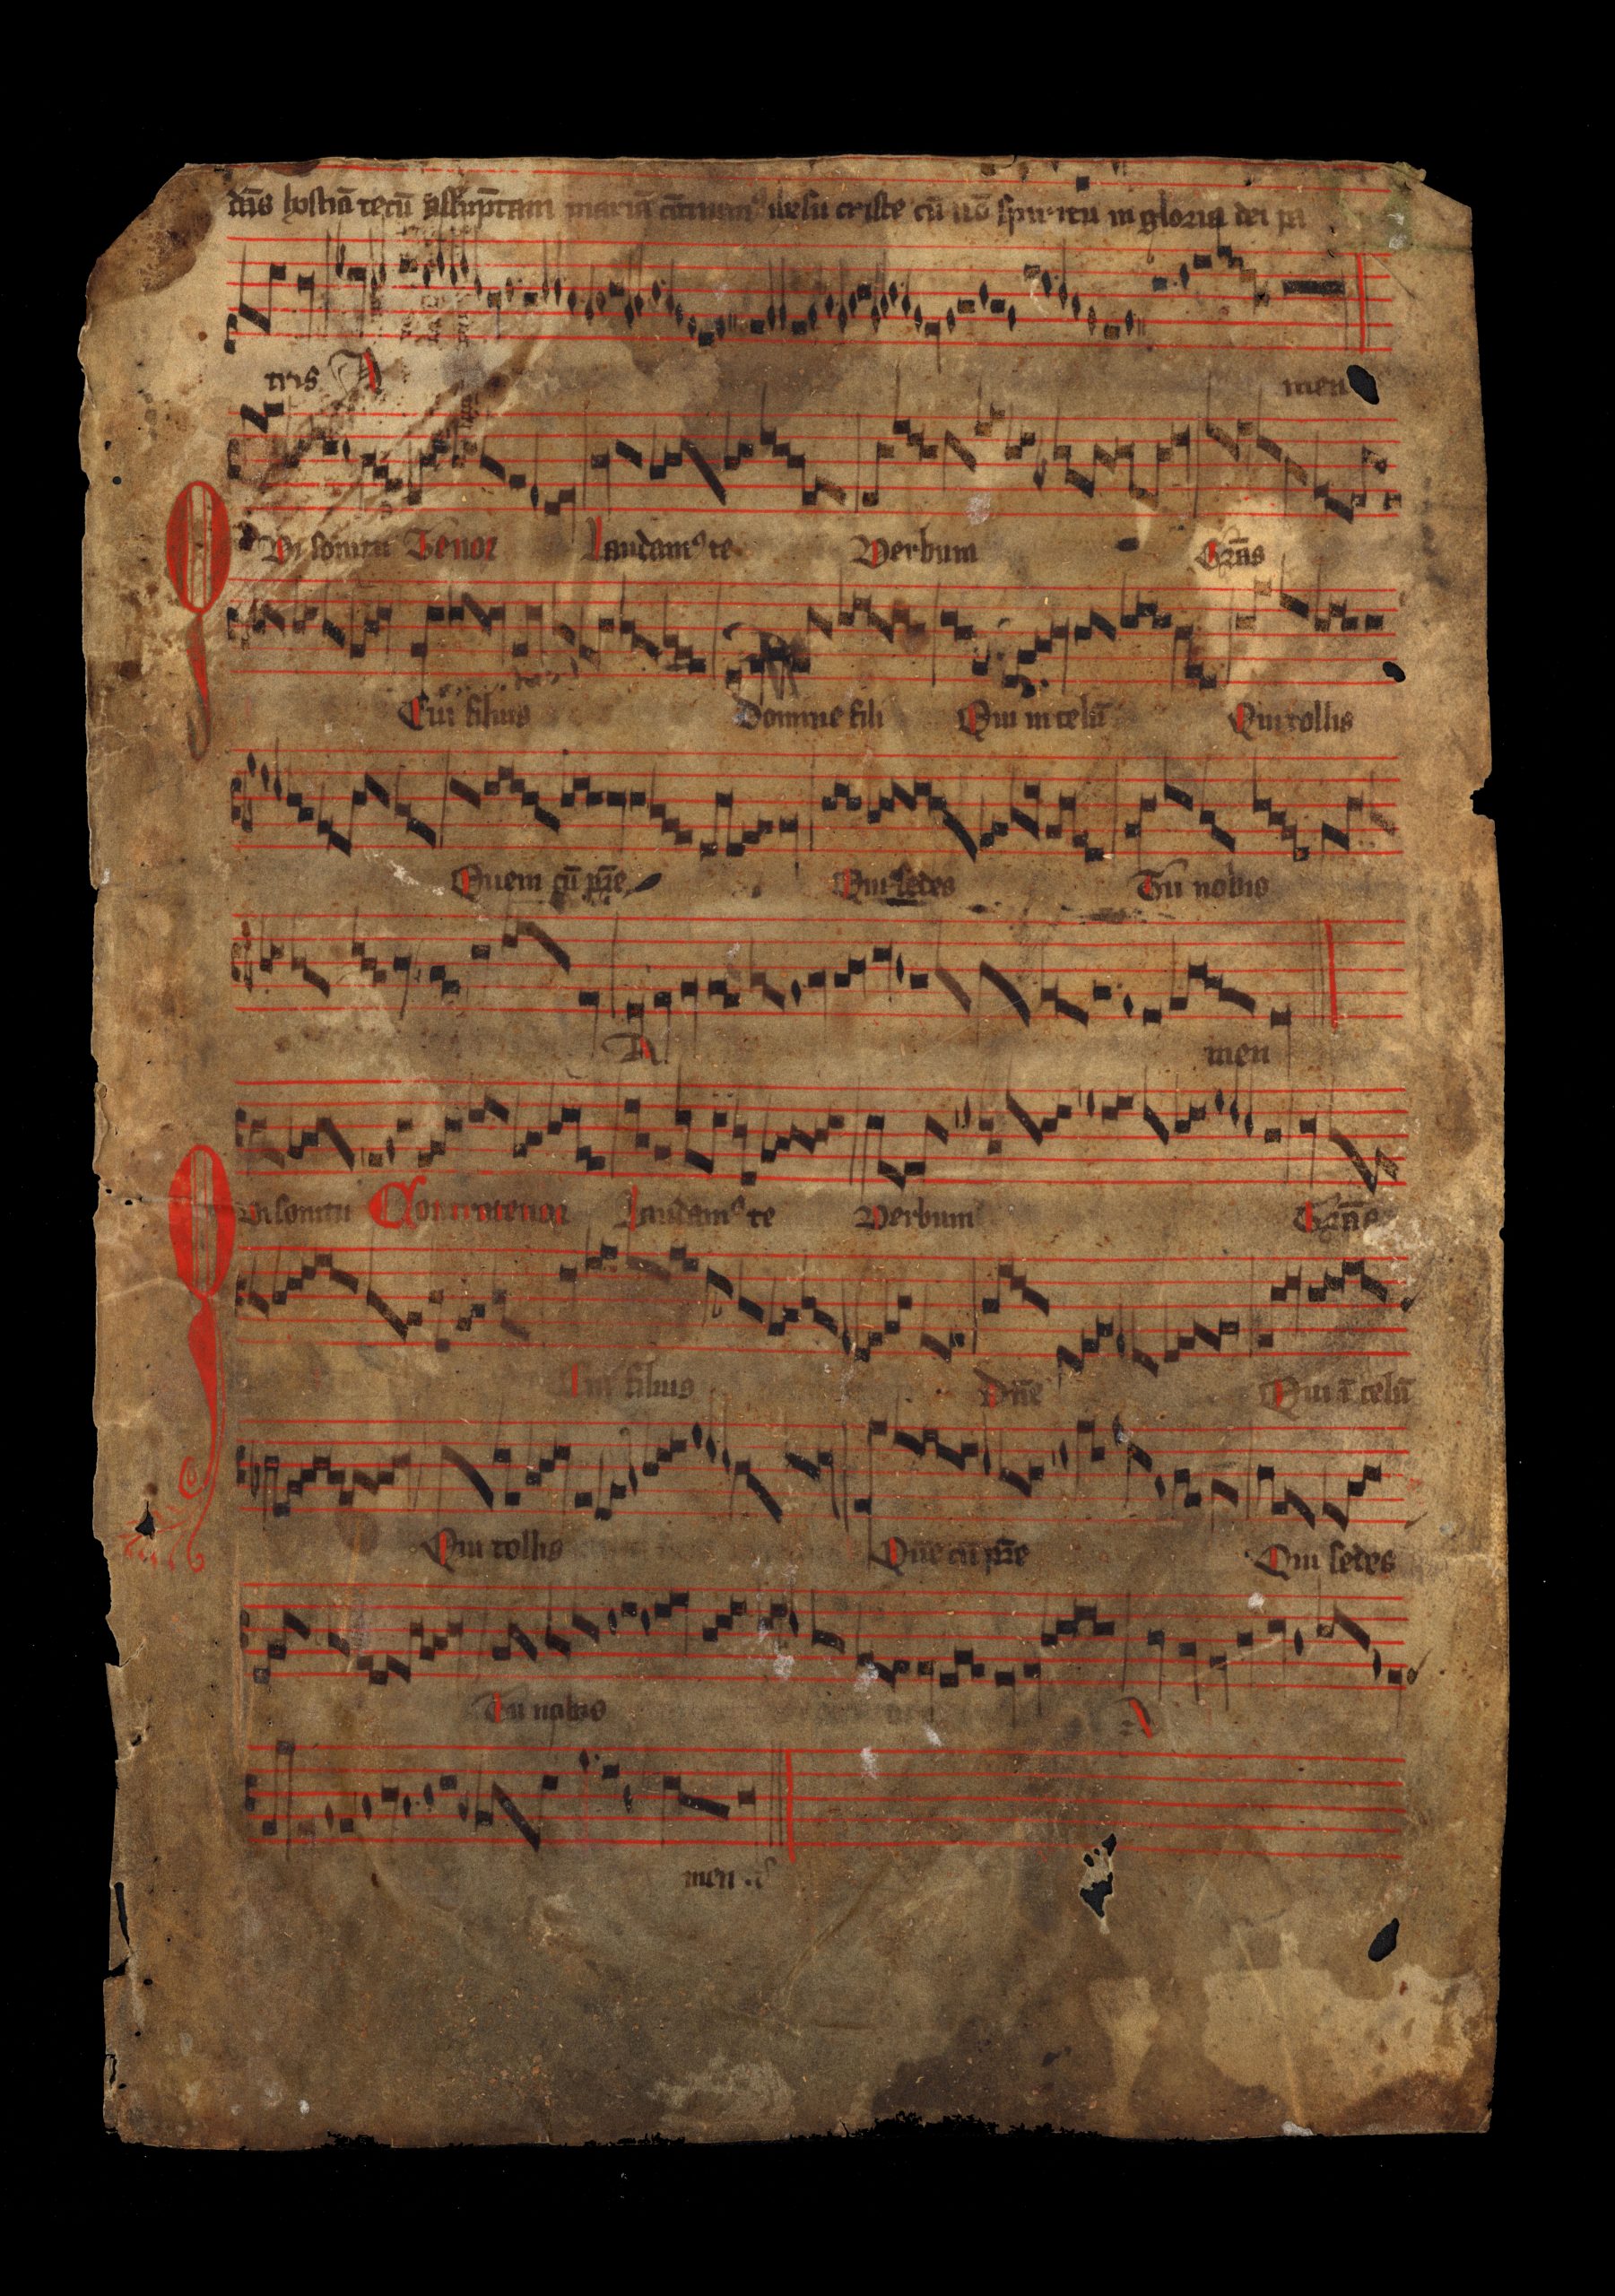 dās hostiā tecū assūptam mariā iħesu criste cū spiritu in gloria dei pa
tris A men
Qui sonitu Tenor Laudamꝰ te Verbum Grās
Cui filius Domine fili Qui in celū Qui tollis
Quem cū pr̄e Qui sedes Tu nobis
A men
Qui sonitu Contratenor Laudamꝰ te Verbum Grās
Cui filius Dn̄e Qui ī celū
Qui tollis Quē cū pr̄e Qui sedes
Tu nobis A
men